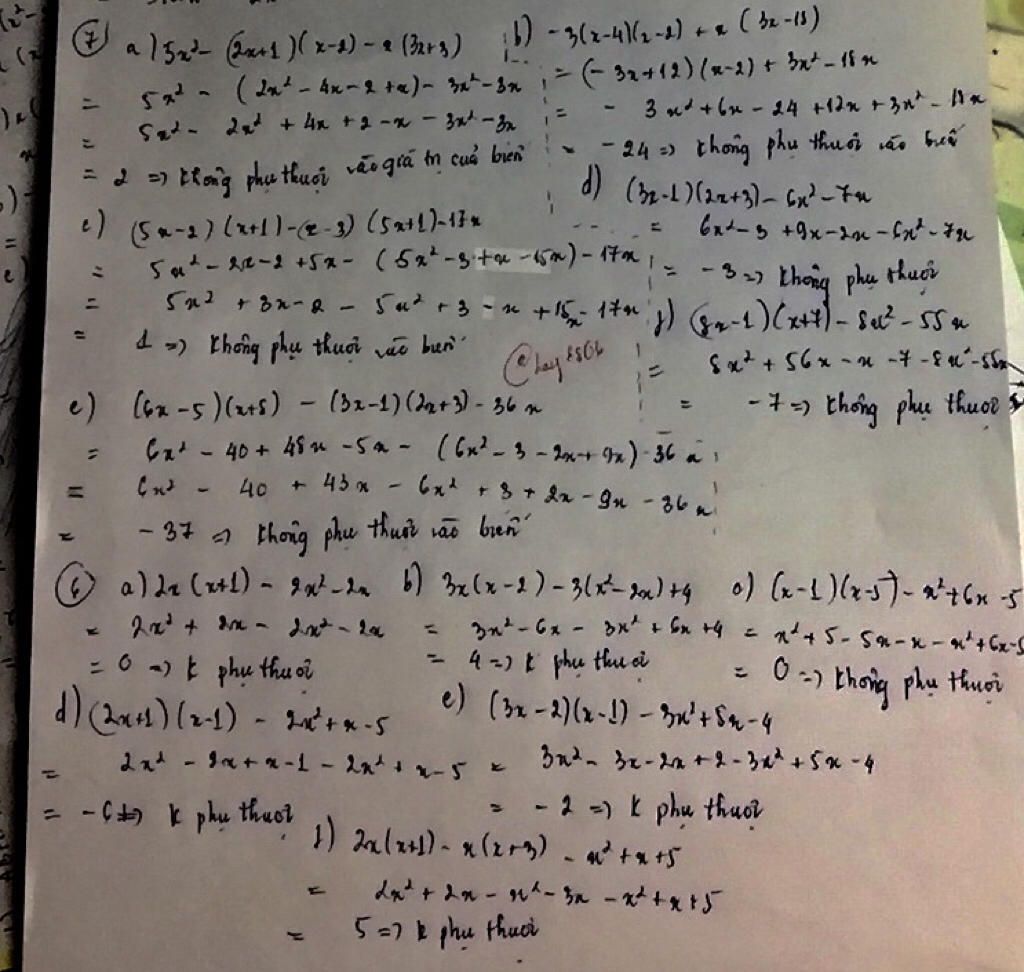 7 a) 5x² - (2x+1)(x-2) - x(3x+3)
= 5x² - (2x² - 4x - 2 + x) - 3x² - 3x
= 5x² - 2x² + 4x + 2 - x - 3x² - 3x
= 2 => không phụ thuộc vào giá trị của biến
b) -3(x-4)(x-2) + x(3x-18)
= (-3x+12)(x-2) + 3x² - 18x
= -3x² + 6x - 24 + 12x + 3x² - 18x
= -24 => không phụ thuộc vào biến
c) (5x-2)(x+1) - (x-3)(5x+1) - 17x
= 5x² - 2x - 2 + 5x - (5x² - 3 + x - 15x) - 17x
= 5x² + 3x - 2 - 5x² + 3 - x + 15x - 17x
= 1 => không phụ thuộc vào biến
d) (3x-1)(2x+3) - 6x² - 7x
= 6x² - 3 + 9x - 2x - 6x² - 7x
= -3 => không phụ thuộc
e) (6x-5)(x+8) - (3x-1)(2x+3) - 36x
= 6x² - 40 + 48x - 5x - (6x² - 3 - 2x + 9x) - 36x
= 6x² - 40 + 43x - 6x² + 3 + 2x - 9x - 36x
= -37 => không phụ thuộc vào biến
f) (8x-1)(x+7) - 8x² - 55x
= 8x² + 56x - x - 7 - 8x² - 55x
= -7 => không phụ thuộc
6 a) 2x(x+1) - 2x² - 2x
= 2x² + 2x - 2x² - 2x
= 0 => k phụ thuộc
b) 3x(x-2) - 3(x² - 2x) + 4
= 3x² - 6x - 3x² + 6x + 4
= 4 => k phụ thuộc
c) (x-1)(x-5) - x² + 6x - 5
= x² + 5 - 5x - x - x² + 6x - 5
= 0 => không phụ thuộc
d) (2x+1)(x-1) - 2x² + x - 5
= 2x² - 2x + x - 1 - 2x² + x - 5
= -6 => k phụ thuộc
e) (3x-2)(x-1) - 3x² + 5x - 4
= 3x² - 3x - 2x + 2 - 3x² + 5x - 4
= -2 => k phụ thuộc
f) 2x(x+1) - x(x+3) - x² + x + 5
= 2x² + 2x - x² - 3x - x² + x + 5
= 5 => k phụ thuộc